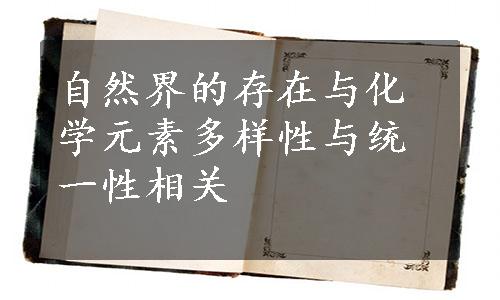 自然界的存在与化
学元素多样性与统
一性相关